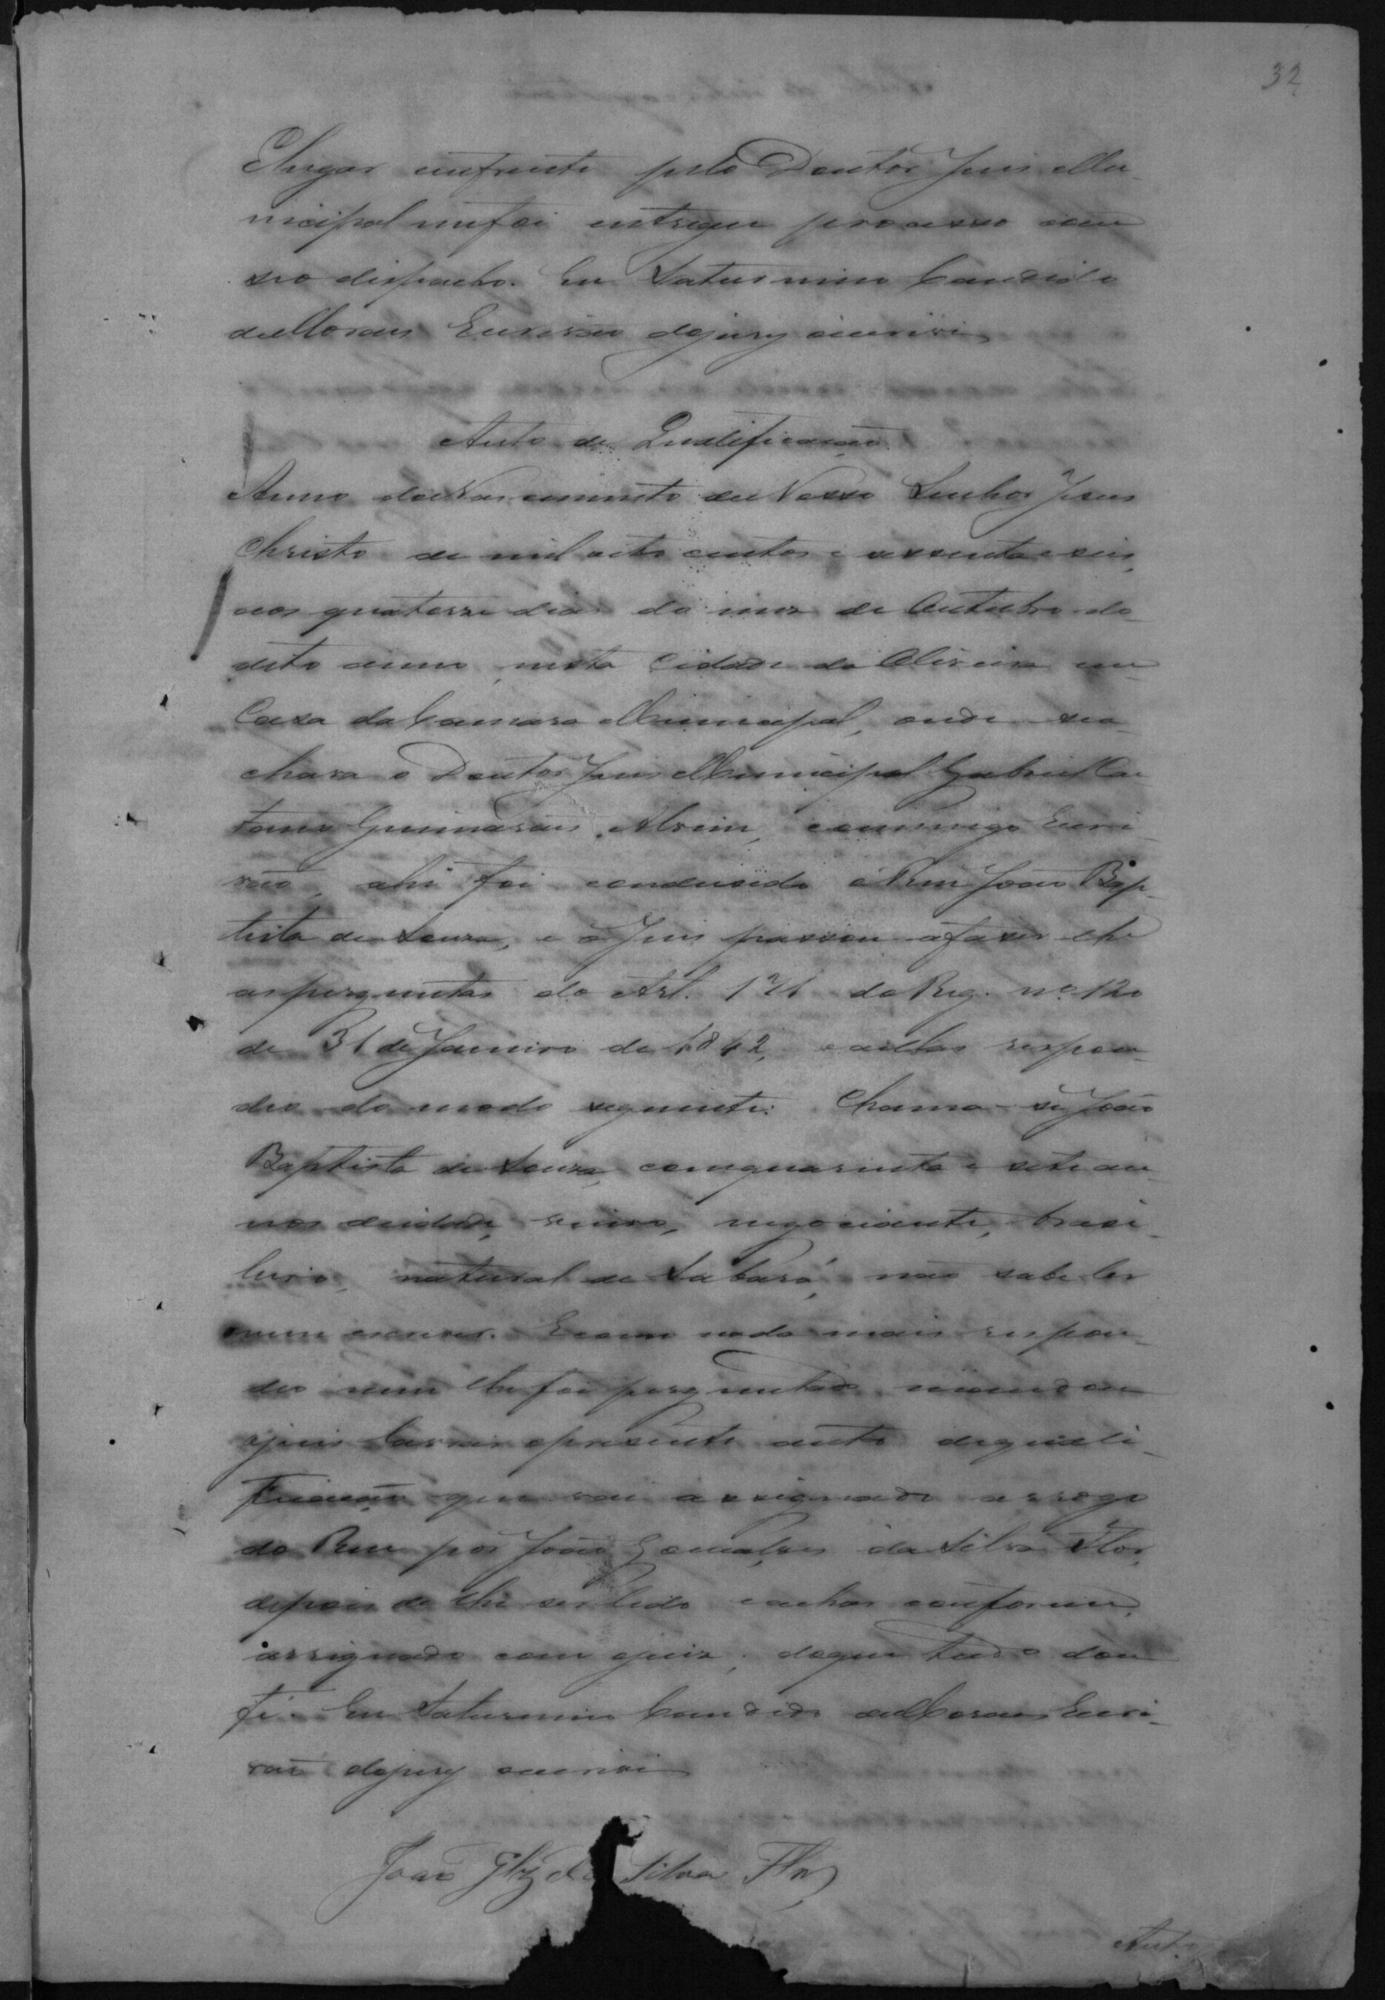 32
lugar em frente pelo Doutor Juis Mu-
nicipal me foi entregue processo com
seo dispacho. Eu Saturnino Candido
de Moraes Escrivão do jury o escrivi
Auto de Qualificação
Anno do Nascimento de Nosso Senhor Jesus
Christo de mil oito centos e sessenta e seis,
aos quatorze dias do mez de Outubro do
dito anno, nesta Cidade da Oliveira em
Caza da Camara Municipal, onde se a-
chava o Doutor Juis Municipal Gabriel Cae-
tano Guimarães Alvim, commigo Escri-
vão, ahi foi condusido o Reu João Bap-
tista de Souza, e o Juis passou a faser-lhe
as perguntas do Art. 171 do Reg. nº 120
de 31 de Janeiro de 1842, e a ellas respon-
deo do modo seguinte: Chama-se João
Baptista de Souza, com quarenta e sete an-
nos de idade, viuvo, negociante, brasi-
leiro, natural de Sabará, não sabe ler
nem escrever. E como nada mais respon-
deo nem lhe foi perguntado, mandou
o juis lavrar o presente auto de quali-
ficação que vai assignado a rogo
do Reu por João Gonçalves da Silva Flor,
depois de lhe ser lido e achar conforme,
assignado com o juiz, do que tudo dou
fé. Eu Saturnino Candido de Moraes Escri-
vão do jury o escrivi
João Glz da Silva Flor
Auto